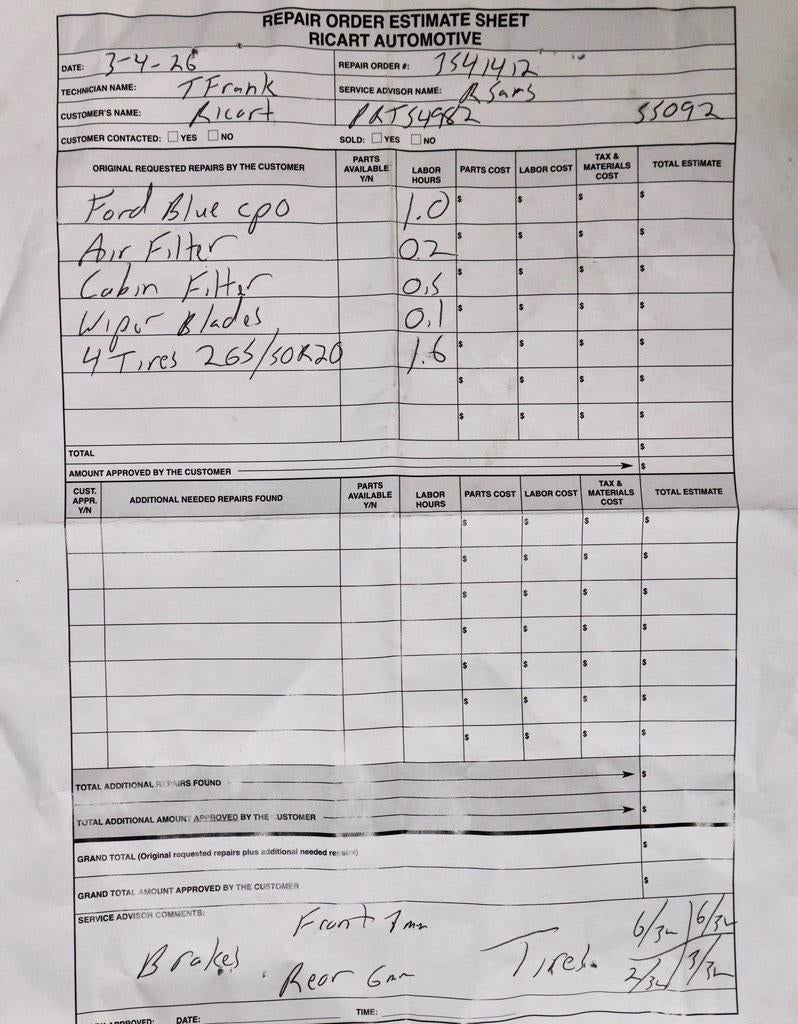 REPAIR ORDER ESTIMATE SHEET
RICART AUTOMOTIVE
DATE: 3-4-26 REPAIR ORDER #: 3541412
TECHNICIAN NAME: T Frank SERVICE ADVISOR NAME: R Sams
CUSTOMER'S NAME: Ricart PRT54982 55092
CUSTOMER CONTACTED: YES NO SOLD: YES NO
ORIGINAL REQUESTED REPAIRS BY THE CUSTOMER PARTS AVAILABLE Y/N LABOR HOURS PARTS COST LABOR COST TAX & MATERIALS COST TOTAL ESTIMATE
Ford Blue cpo 1.0 $ $ $ $
Air Filter 0.2 $ $ $ $
Cabin Filter 0.5 $ $ $ $
Wiper Blades 0.1 $ $ $ $
4 Tires 265/50R20 1.6 $ $ $ $
$ $ $ $
$ $ $ $
TOTAL $
AMOUNT APPROVED BY THE CUSTOMER $
CUST. APPR. Y/N ADDITIONAL NEEDED REPAIRS FOUND PARTS AVAILABLE Y/N LABOR HOURS PARTS COST LABOR COST TAX & MATERIALS COST TOTAL ESTIMATE
$ $ $ $
$ $ $ $
$ $ $ $
$ $ $ $
$ $ $ $
$ $ $ $
$ $ $ $
TOTAL ADDITIONAL REPAIRS FOUND $
TOTAL ADDITIONAL AMOUNT APPROVED BY THE CUSTOMER $
GRAND TOTAL (Original requested repairs plus additional needed repairs) $
GRAND TOTAL AMOUNT APPROVED BY THE CUSTOMER $
SERVICE ADVISOR COMMENTS:
Front 7mm 6/32 6/32
Brakes Tires
Rear 6mm 2/32 3/32
APPROVED: DATE: TIME: